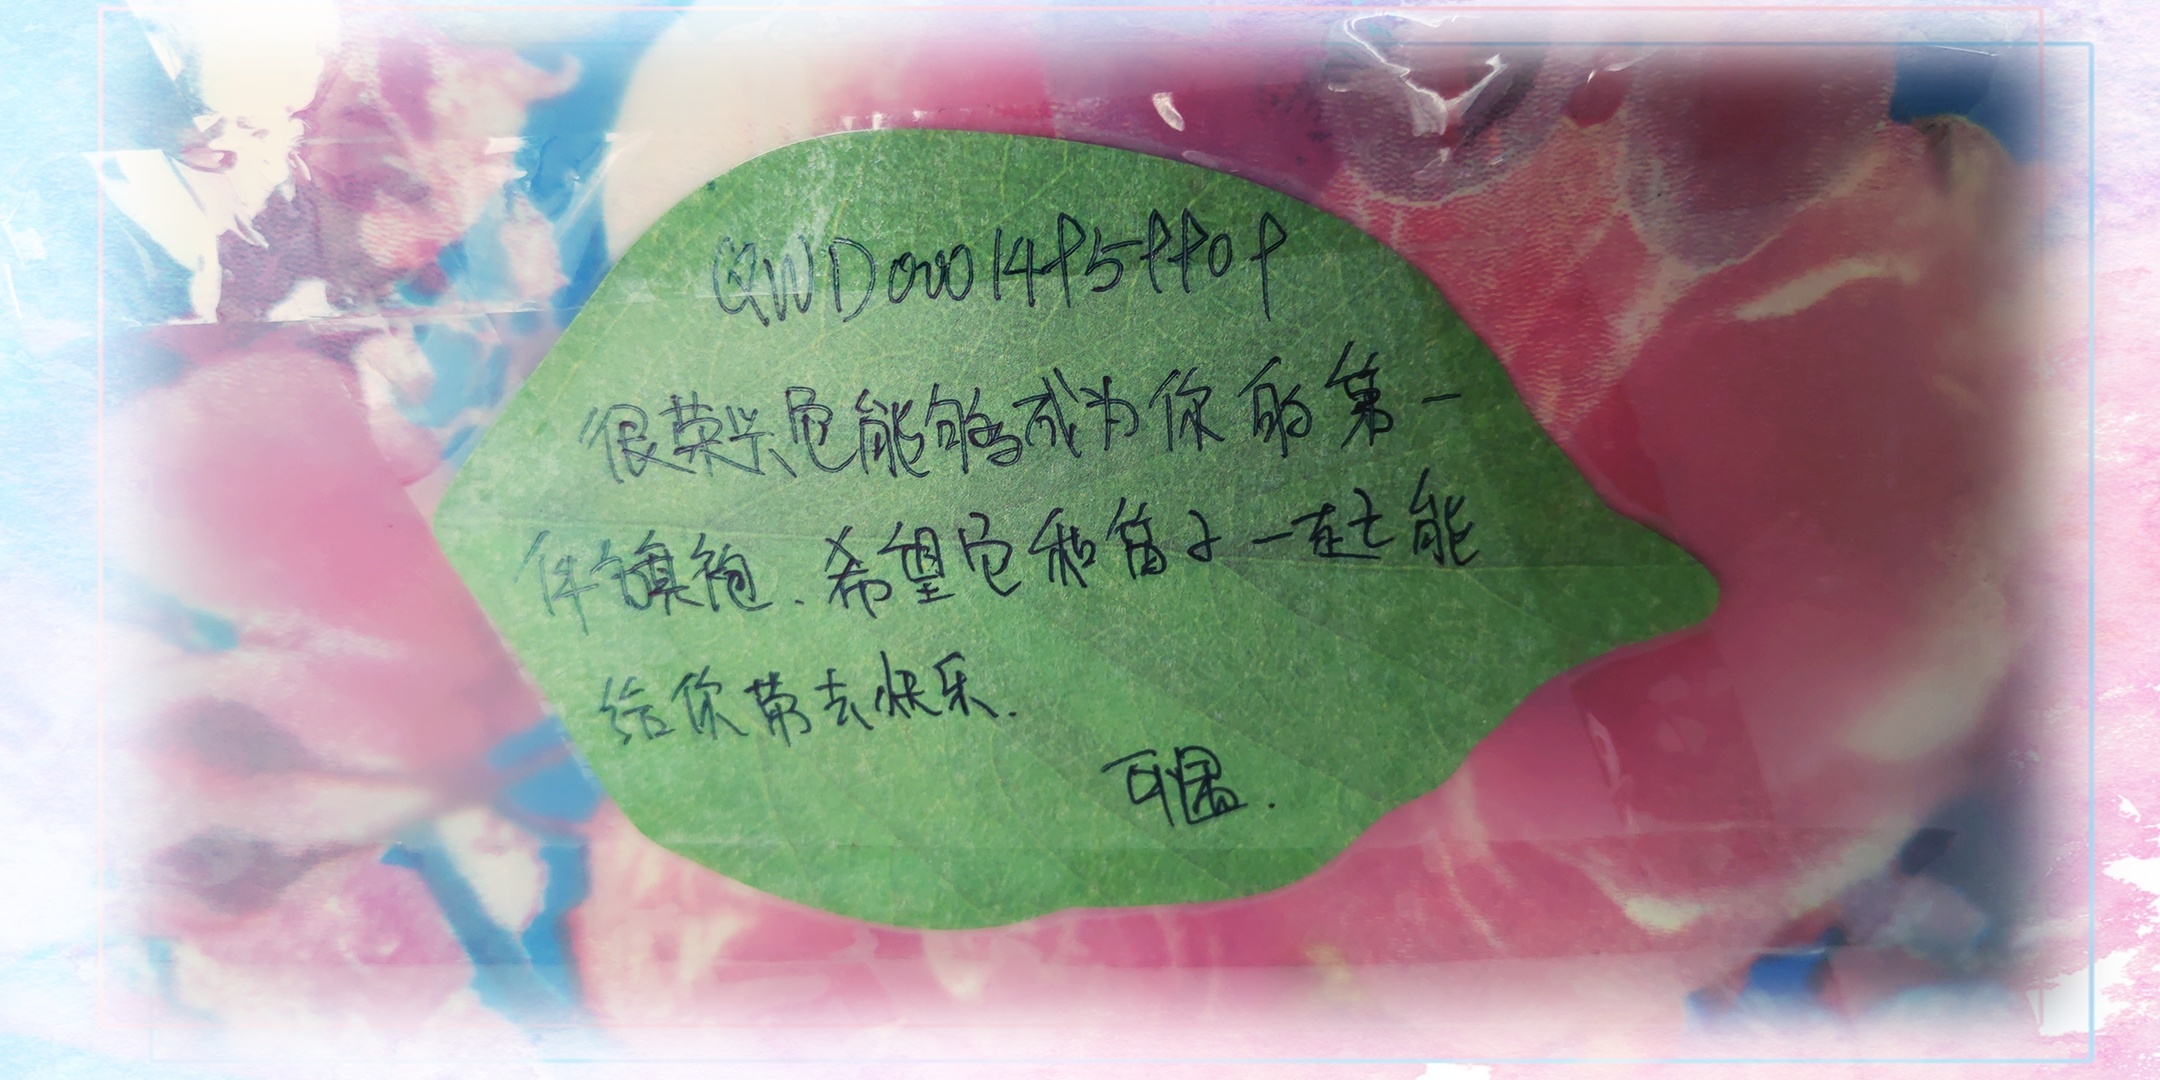 QWD00014959909
很荣兴它能够成为你的第一
件旗袍.希望它和笛子一起能
给你带去快乐.